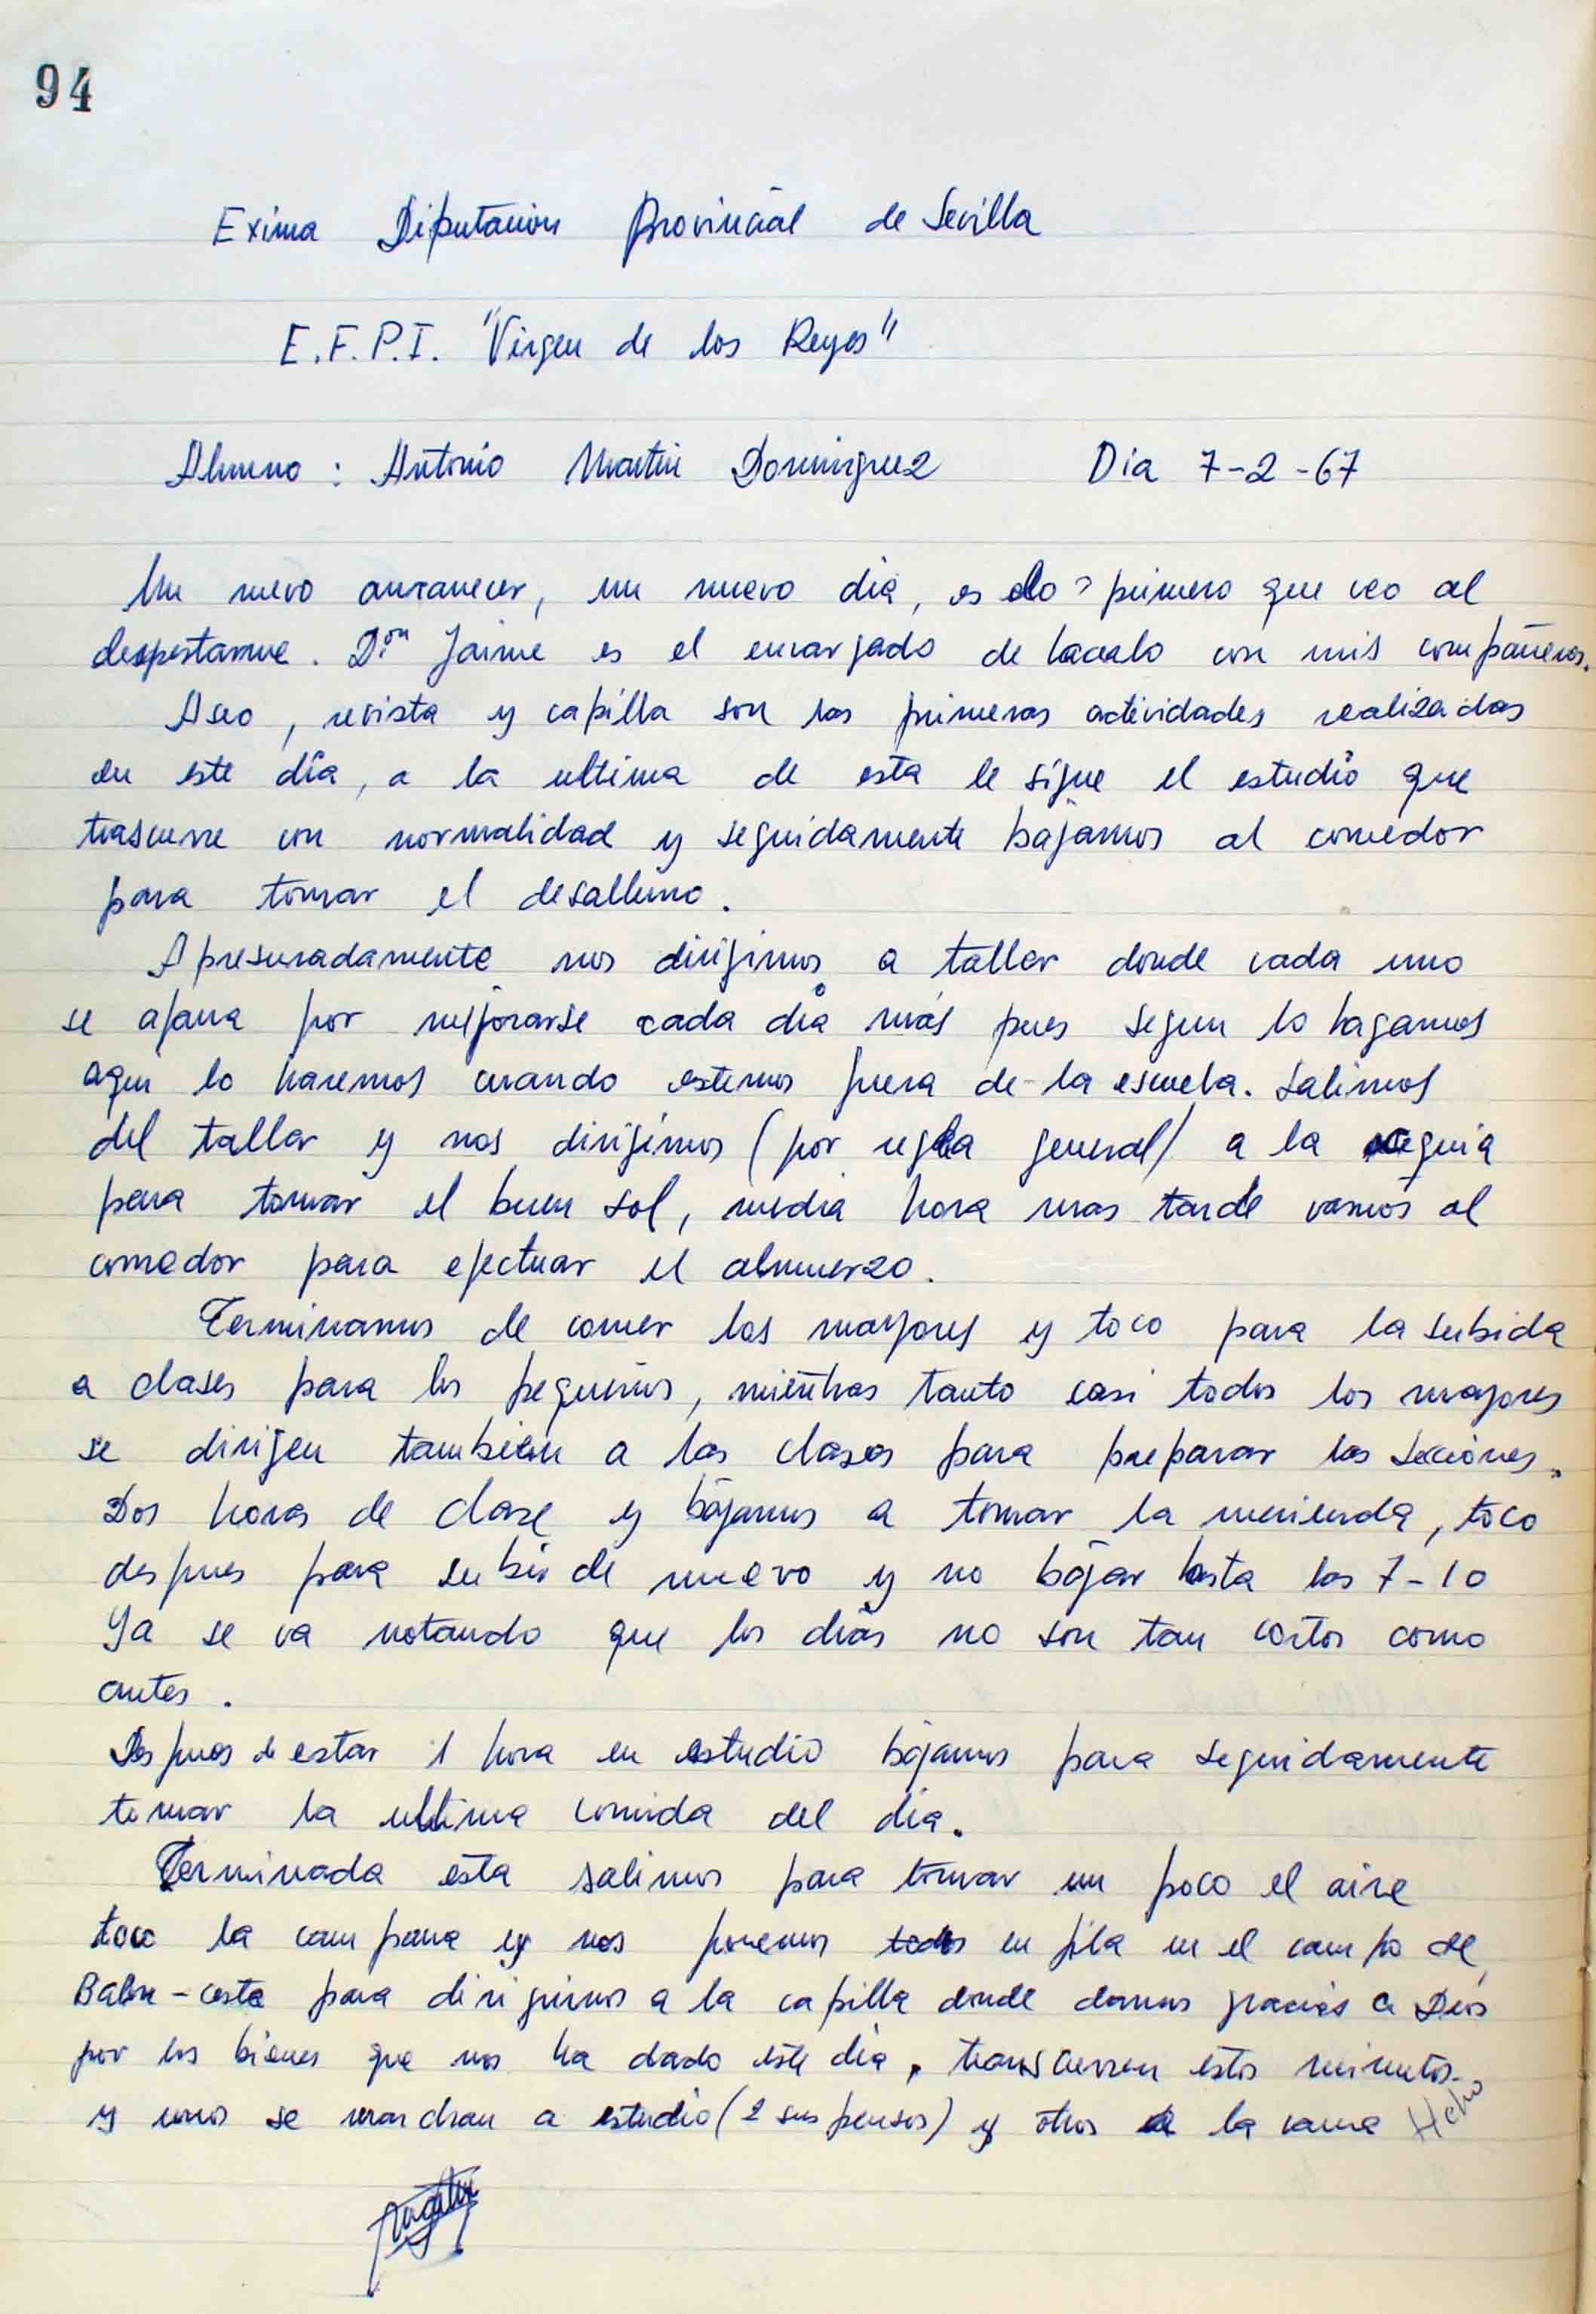 94
Exima Diputación Provincial de Sevilla
E.F.P.I. "Virgen de los Reyes"
Alumno : Antonio Martin Dominguez Dia 7-2-67
Un nuevo amanecer, un nuevo dia, es lo primero que veo al
despertarme. Don Jaime es el encargado de hacerlo con mis compañeros.
Aseo, revista y capilla son las primeras actividades realizadas
en este día, a la ultima de esta le sigue el estudio que
trascurre con normalidad y seguidamente bajamos al comedor
para tomar el desalluno.
Apresuradamente nos dirigimos a taller donde cada uno
se afana por mejorarse cada dia más pues segun lo hagamos
aqui lo haremos cuando estemos fuera de la escuela. Salimos
del taller y nos dirigimos (por regla general) a la
para tomar el buen sol, media hora mas tarde vamos al
comedor para efectuar el almuerzo.
Terminamos de comer los mayores y toco para la subida
a clases para los pequeños, mientras tanto casi todos los mayores
se dirigen tambien a las clases para preparar las lecciones.
Dos horas de clase y bajamos a tomar la merienda, toco
despues para subir de nuevo y no bajar hasta las 7-10
Ya se va notando que los dias no son tan cortos como
antes.
Despues de estar 1 hora en estudio bajamos para seguidamente
tomar la ultima comida del dia.
Terminada esta salimos para tomar un poco el aire
toco la campana y nos ponemos todos en fila en el campo de
Balon-cesta para dirigirnos a la capilla donde damos gracias a Dios
por los bienes que nos ha dado este dia, transcurren estos minutos
y unos se marchan a estudio (2 suspensos) y otros a la cama Hecho